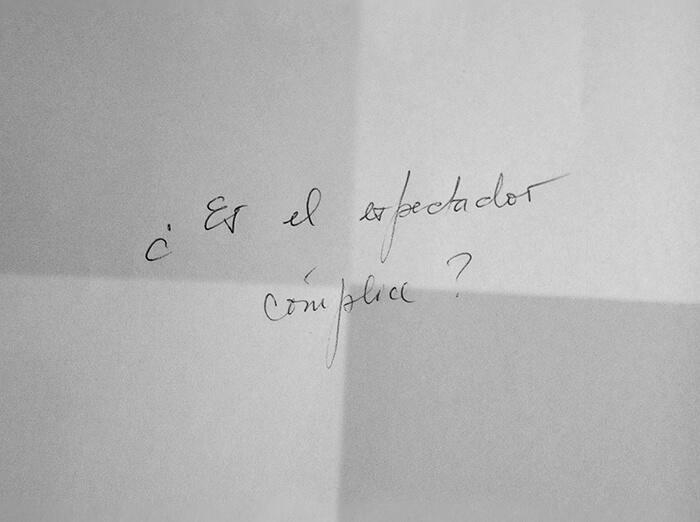 ¿ Es el espectador
cómplice ?